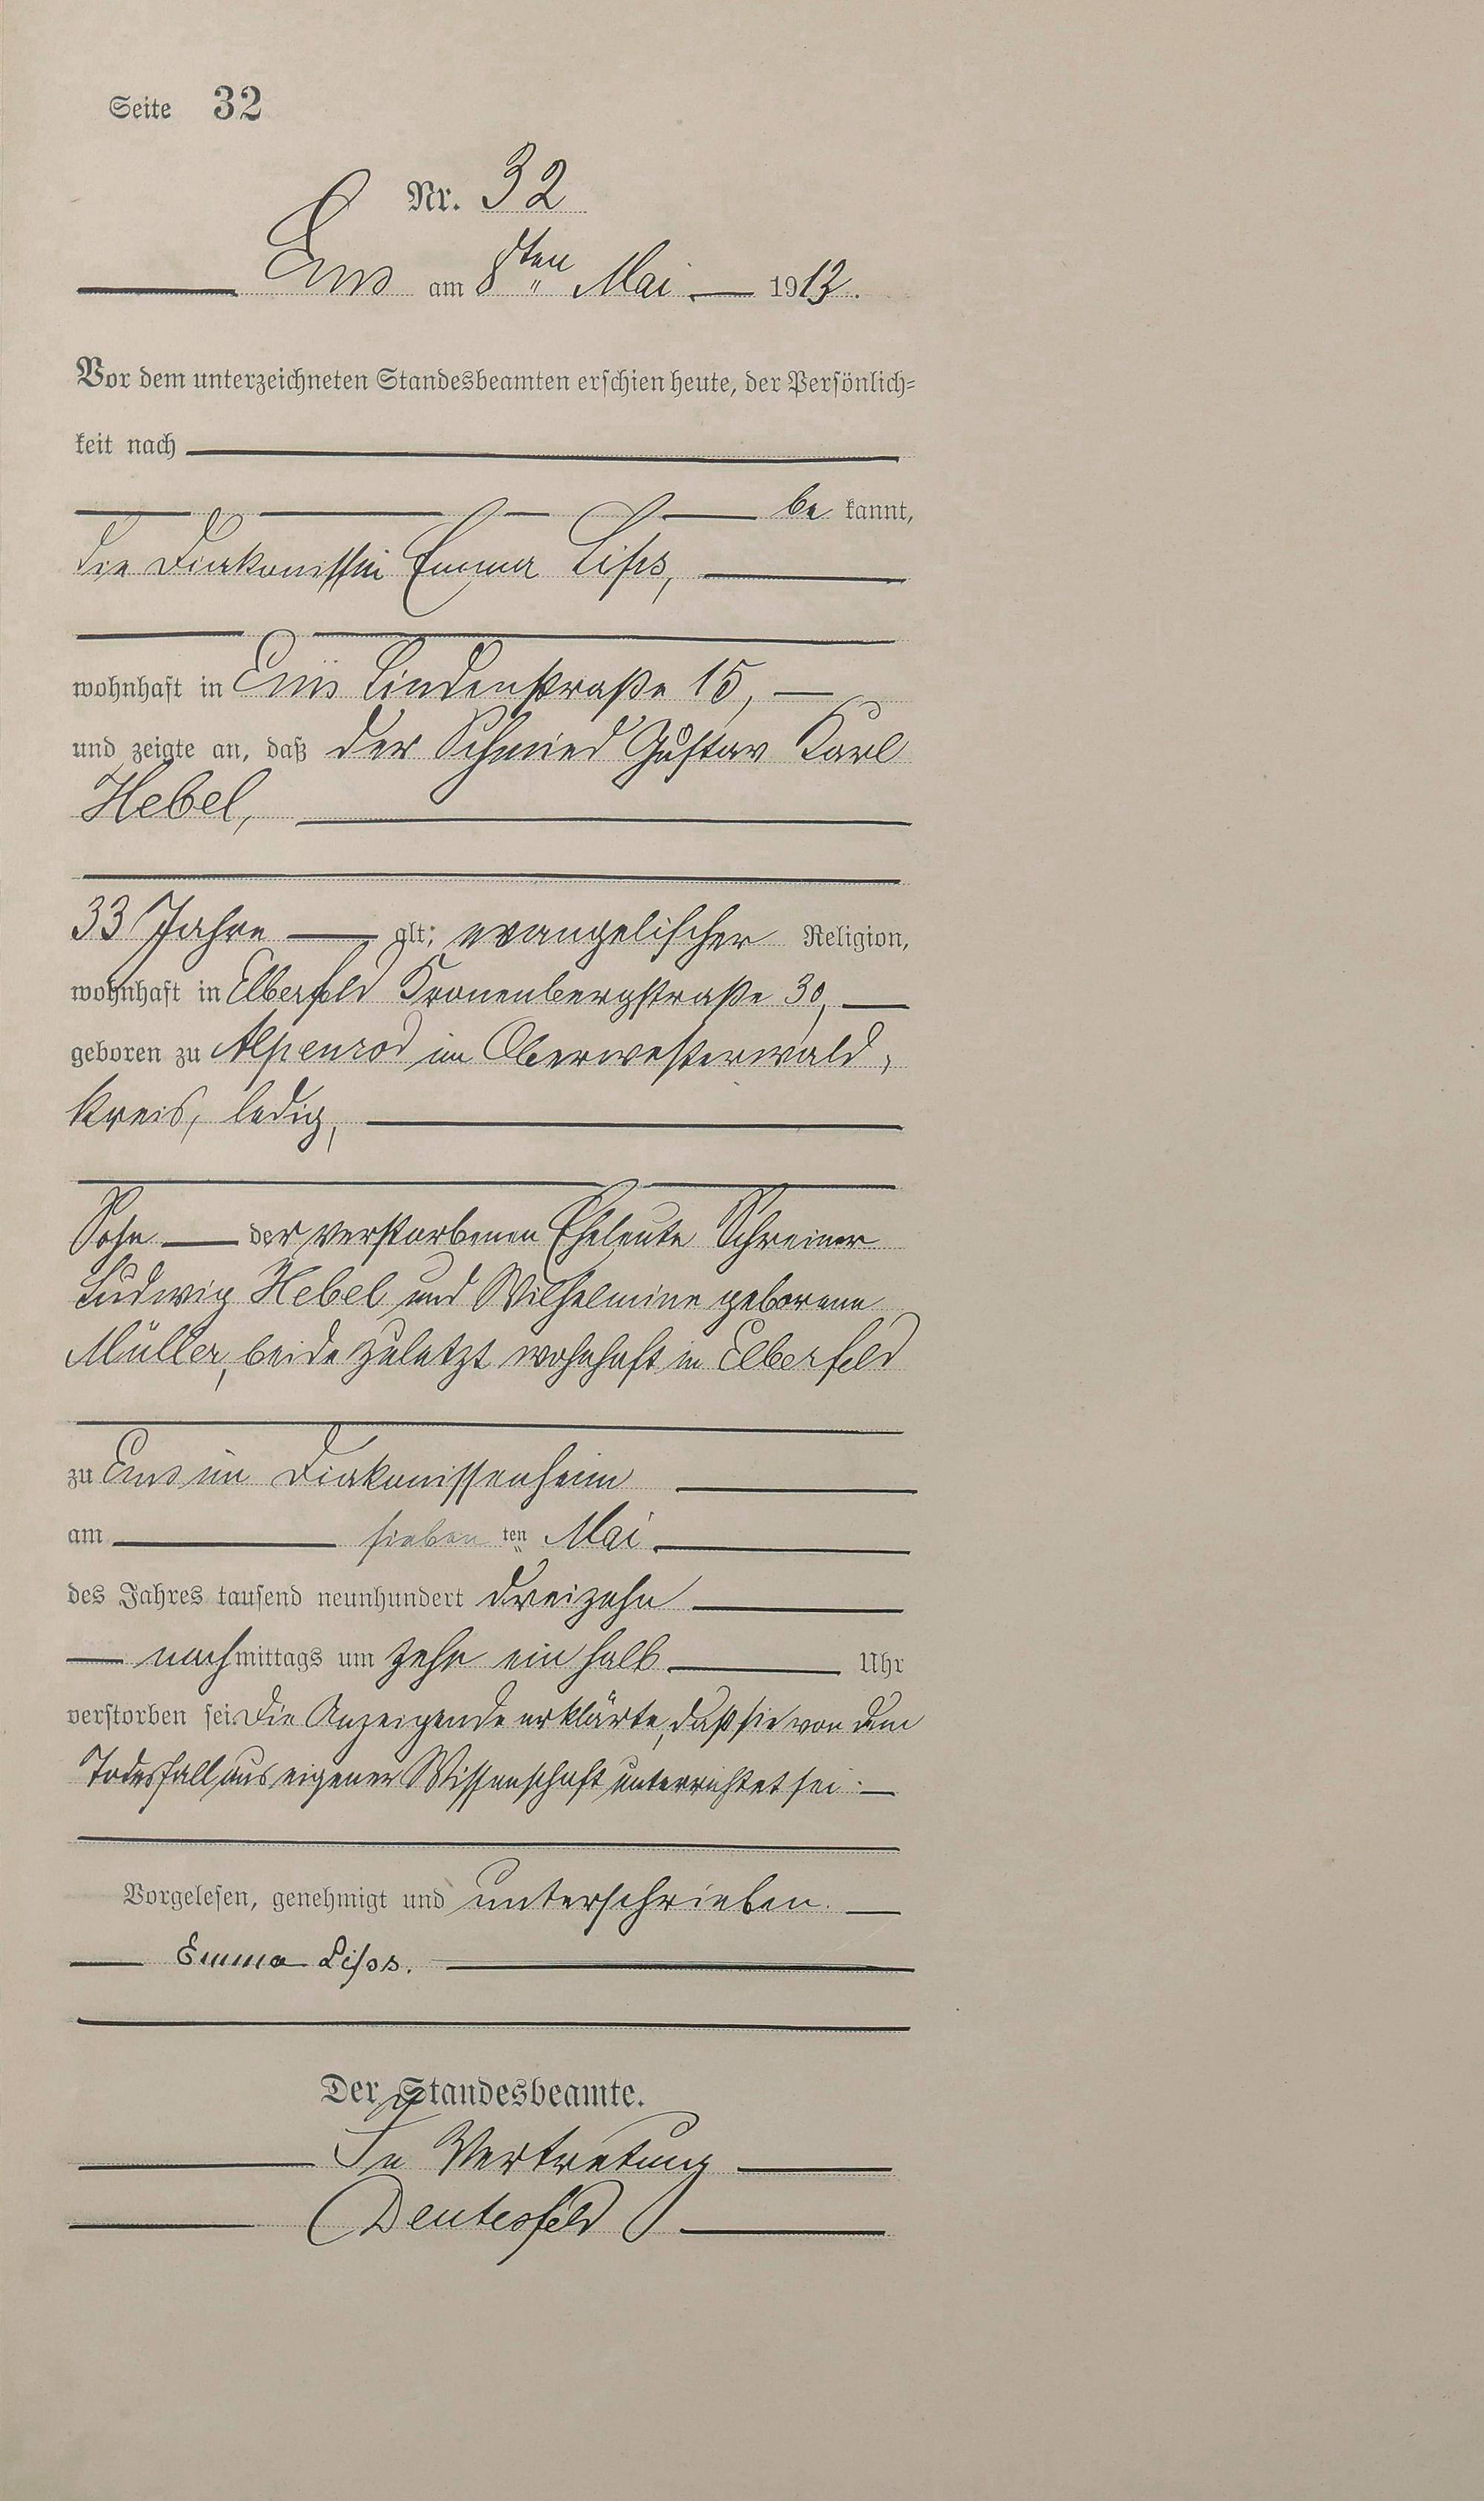 Seite 32
Nr. 32
Ems am 8ten Mai 1913.
Vor dem unterzeichneten Standesbeamten erschien heute, der Persönlich-
keit nach
be kannt,
die Diakonissin Emma Lips,
wohnhaft in Ems Lindenstraße 15,
und zeigte an, daß der Schmied Gustav Karl
Hebel,
33 Jahre alt, evangelischer Religion,
wohnhaft in Elberfeld Kronenbergstraße 30,
geboren zu Alpenrod im Oberwesterwald,
kreis, ledig,
Sohn der verstorbenen Eheleute Schreiner
Ludwig Hebel und Wilhelmine geborene
Müller, beide zuletzt wohnhaft in Elberfeld
zu Ems im Diakonissenheim
am sieben ten Mai
des Jahres tausend neunhundert dreizehn
nachmittags um zehn ein halb Uhr
verstorben sei. Die Anzeigende erklärte, daß sie von dem
Todesfall aus eigener Wissenschaft unterrichtet sei.
Vorgelesen, genehmigt und unterschrieben.
Emma Lips.
Der Standesbeamte.
In Vertretung